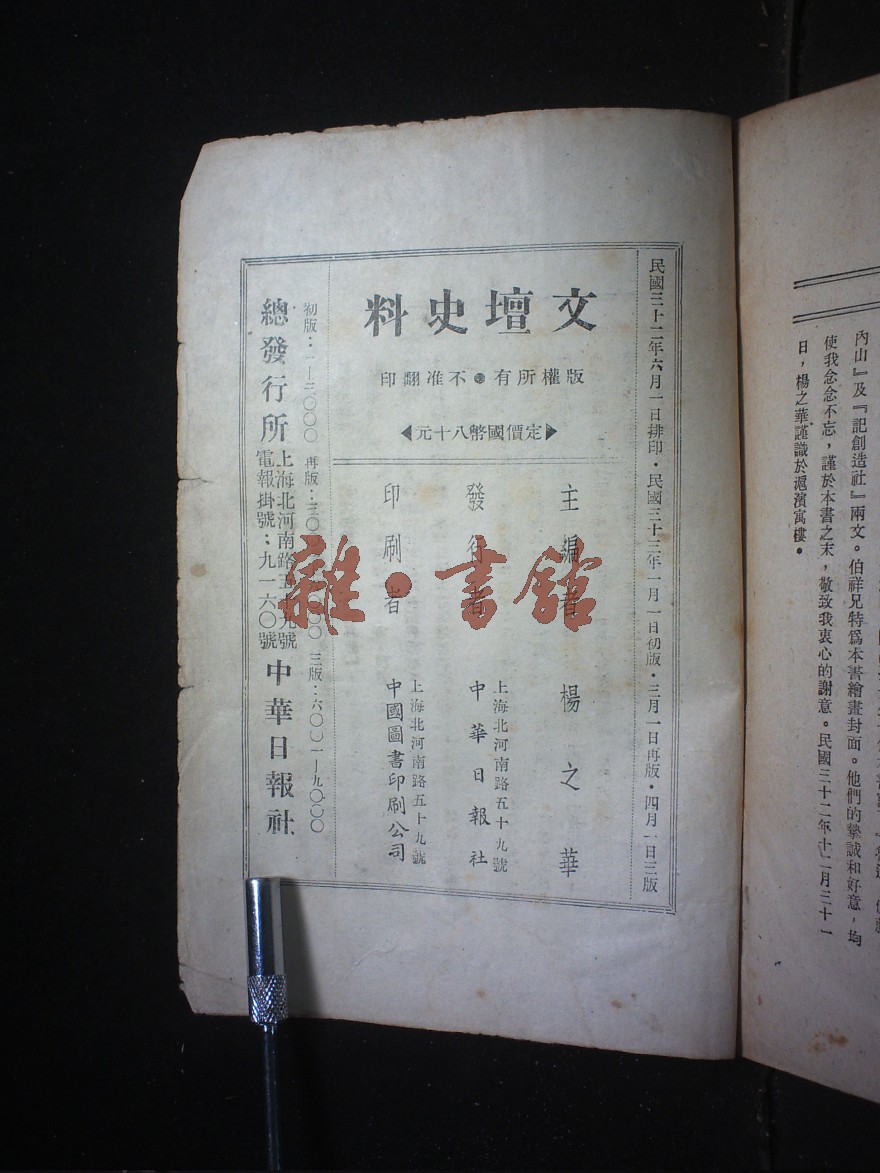 內山』及『記創造社』兩文。伯祥兄特爲本書繪畫封面。他們的摯誠和好意，均
使我念念不忘，謹於本書之末，敬致我衷心的謝意。民國三十二年十二月三十一
日，楊之華謹識於滬濱寓樓。
民國三十二年六月一日排印・民國三十三年一月一日初版・三月一日再版・四月一日三版
文壇史料
版權所有●不准翻印
定價國幣八十元
主編者 楊之華
發行者 上海北河南路五十九號
中華日報社
印刷者 上海北河南路五十九號
中國圖書印刷公司
初版：一—三〇〇〇 再版：三〇 〇〇〇 三版：六〇〇一—九〇〇〇
總發行所 上海北河南路五十九號
電報掛號：九一六〇號
中華日報社
雜・書館